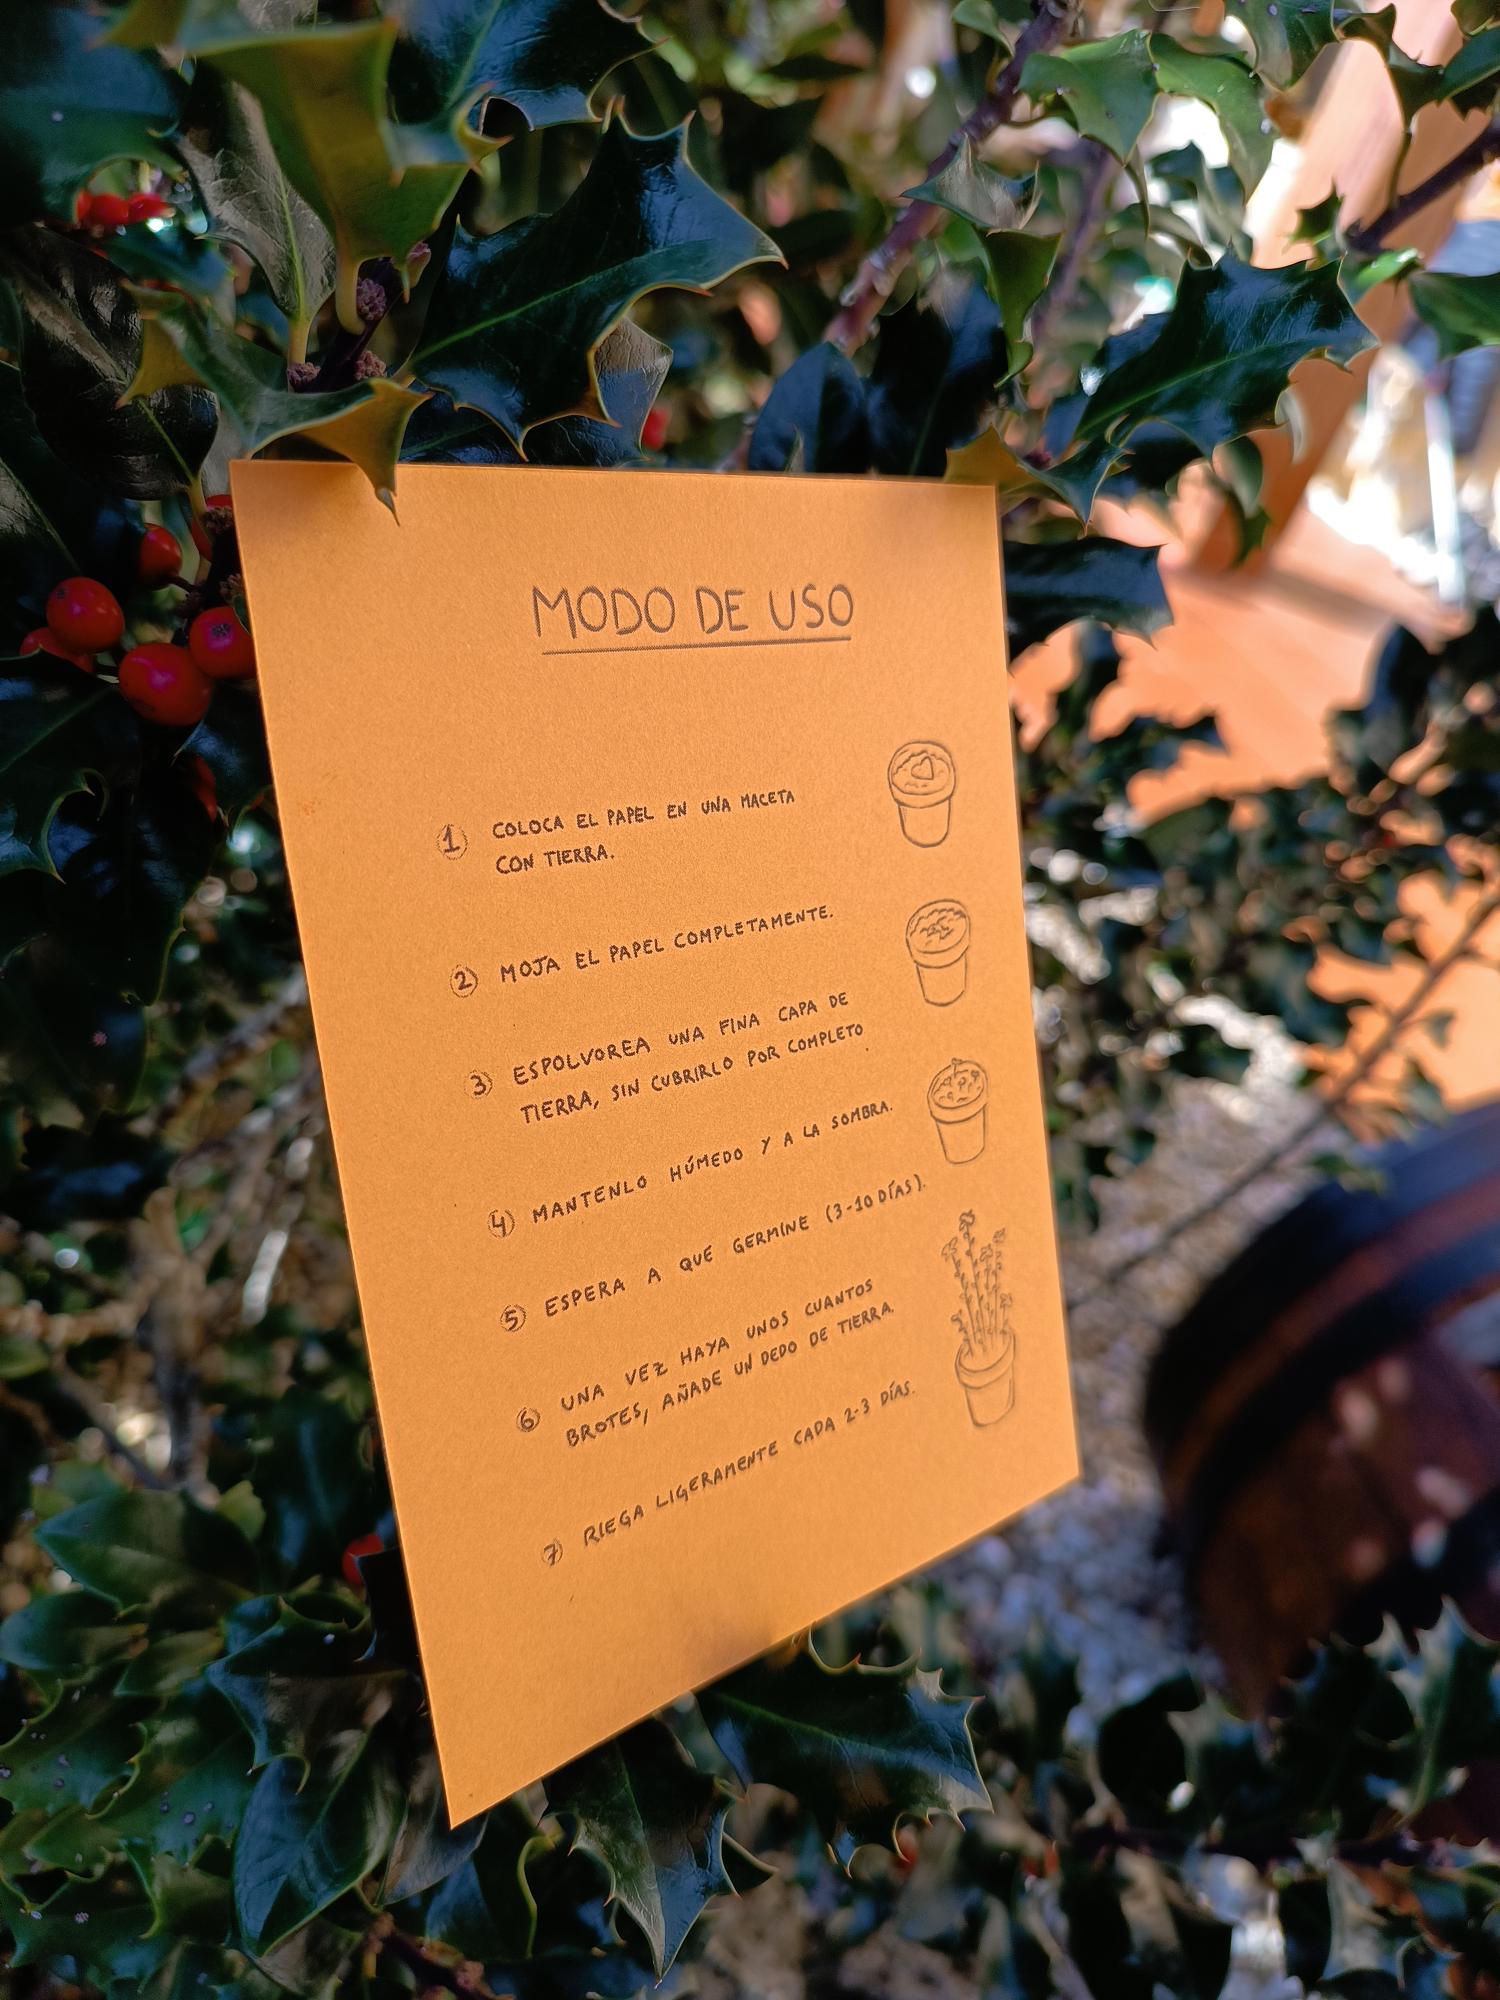 MODO DE USO
1 COLOCA EL PAPEL EN UNA MACETA
CON TIERRA.
2 MOJA EL PAPEL COMPLETAMENTE.
3 ESPOLVOREA UNA FINA CAPA DE
TIERRA, SIN CUBRIRLO POR COMPLETO
4 MANTENLO HÚMEDO Y A LA SOMBRA.
5 ESPERA A QUE GERMINE (3-10 DÍAS).
6 UNA VEZ HAYA UNOS CUANTOS
BROTES, AÑADE UN DEDO DE TIERRA.
7 RIEGA LIGERAMENTE CADA 2-3 DÍAS.